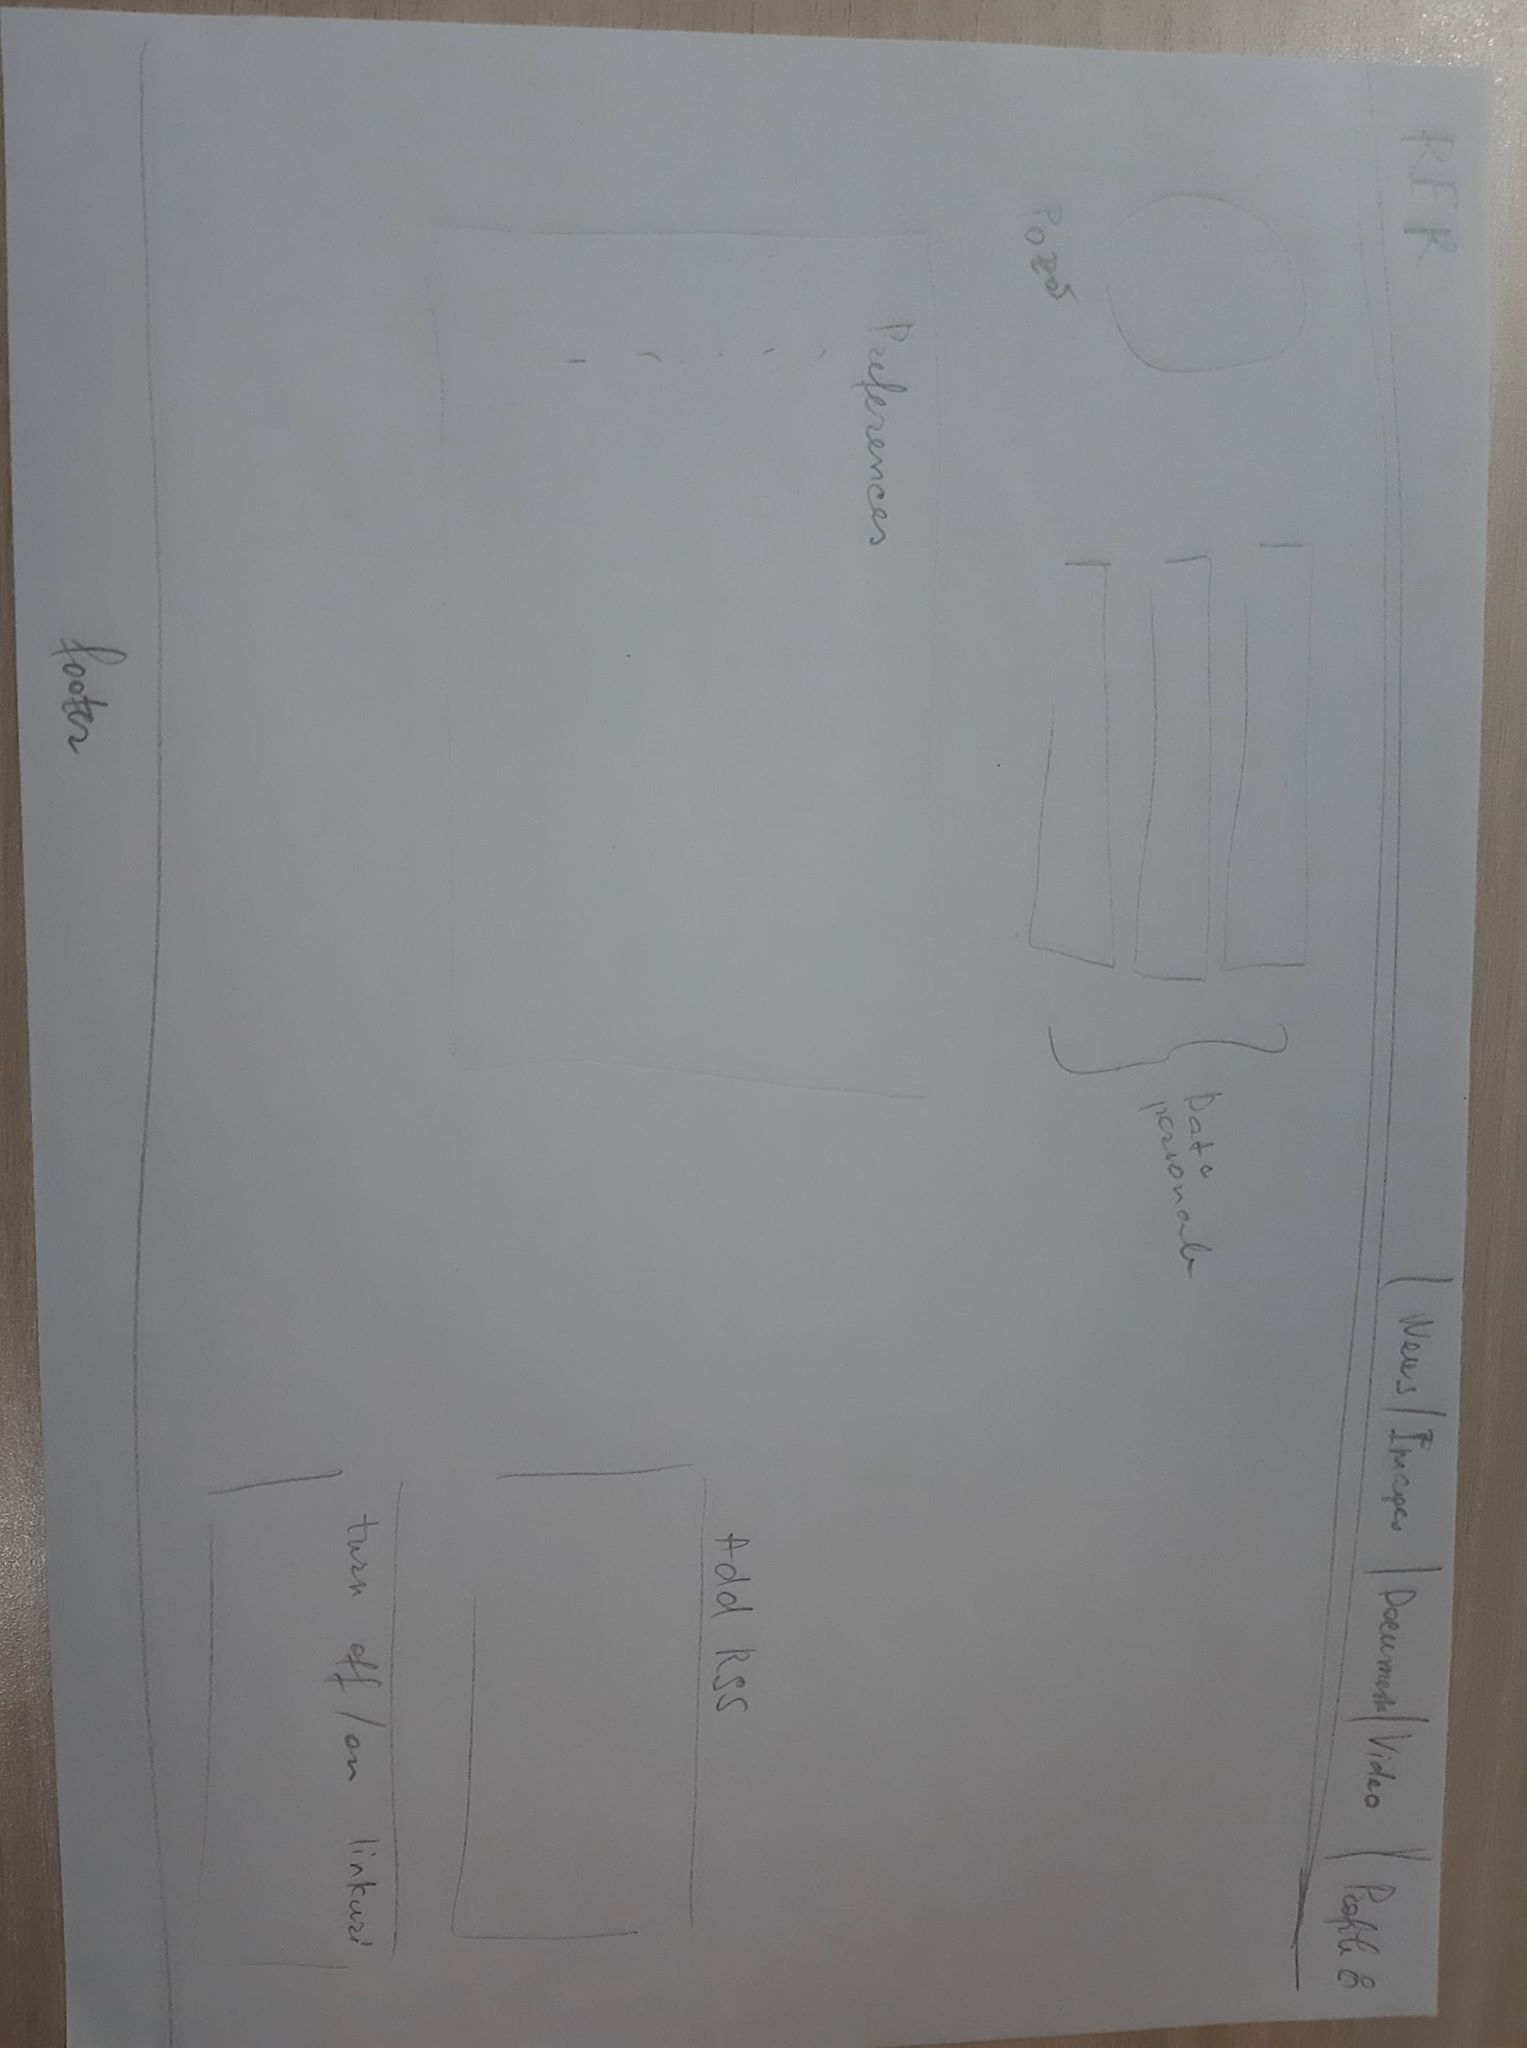 RFR
News Images Documents Video Profile
Poză
Date
personale
Preferences
Add RSS
turn off/on linkuri
footer